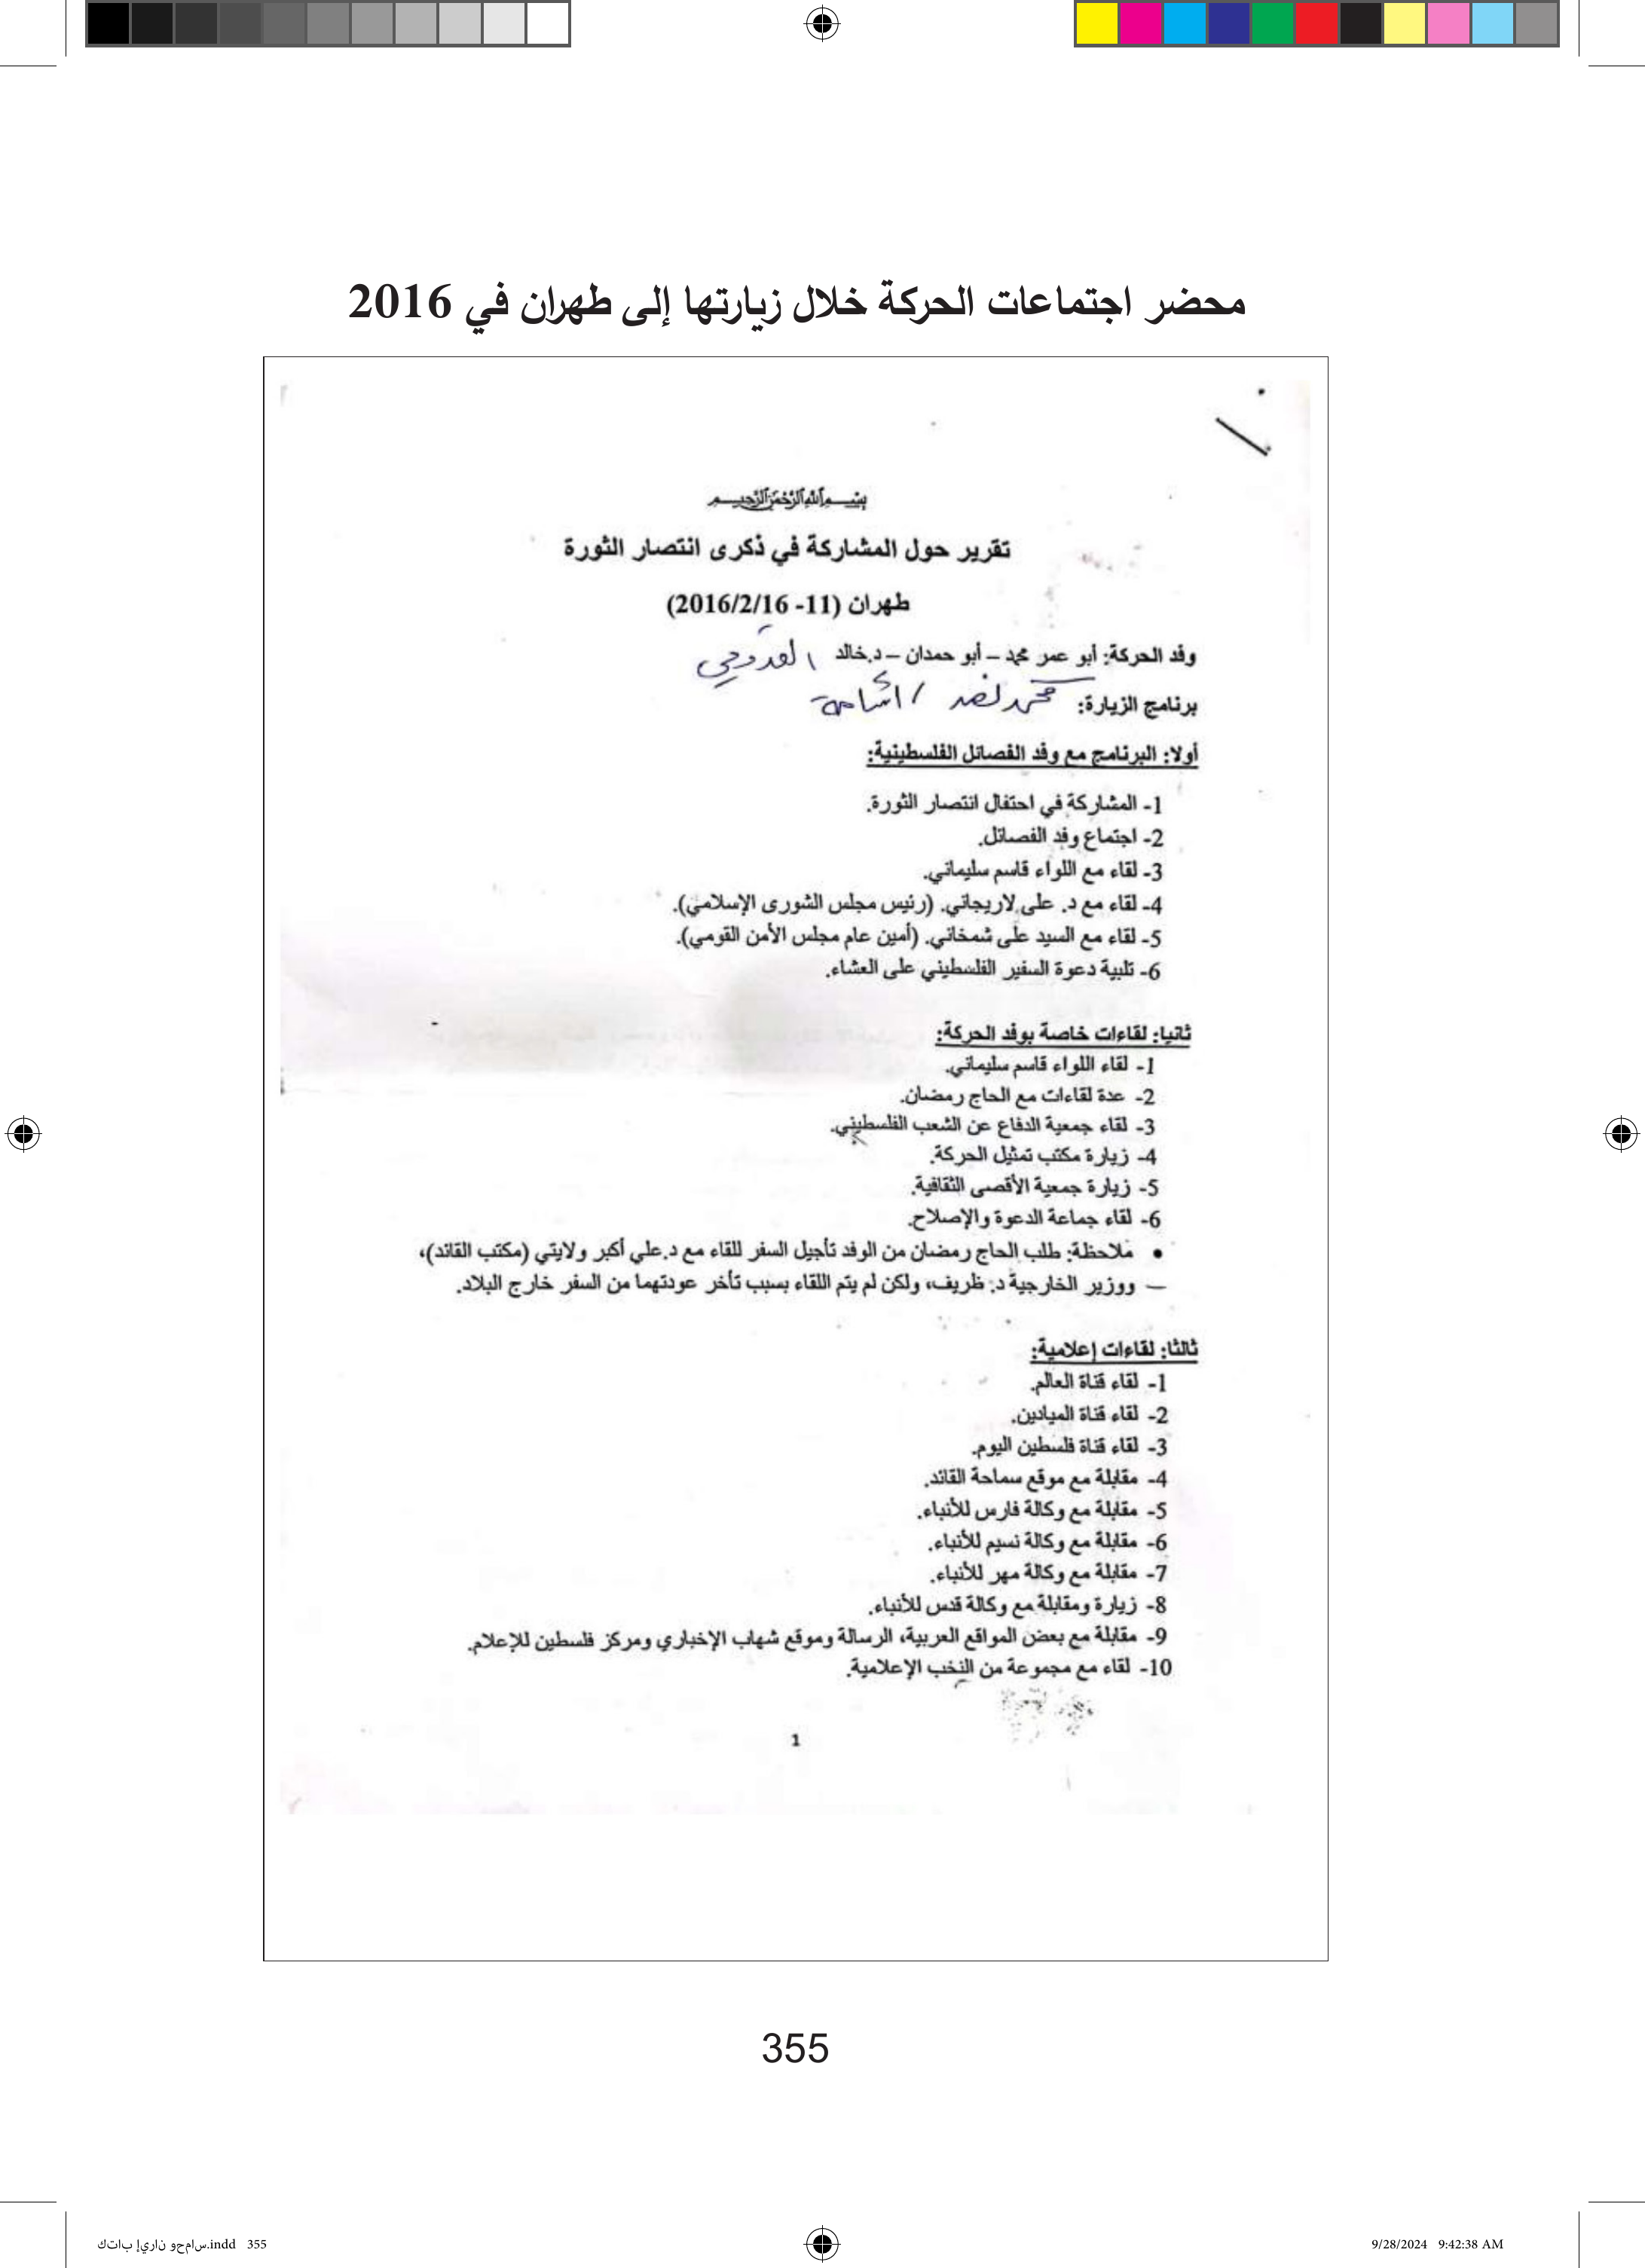 محضر اجتماعات الحركة خلال زيارتها إلى طهران في 2016
بسم الله الرحمن الرحيم
تقرير حول المشاركة في ذكرى انتصار الثورة
طهران (11- 2016/2/16)
وفد الحركة: أبو عمر محمد – أبو حمدان – د.خالد القدومي
برنامج الزيارة: محمد نصر / أسامة
أولا: البرنامج مع وفد الفصائل الفلسطينية:
1- المشاركة في احتفال انتصار الثورة.
2- اجتماع وفد الفصائل.
3- لقاء مع اللواء قاسم سليماني.
4- لقاء مع د. على لاريجاني. (رئيس مجلس الشورى الإسلامي).
5- لقاء مع السيد على شمخاني. (أمين عام مجلس الأمن القومي).
6- تلبية دعوة السفير الفلسطيني على العشاء.
ثانيا: لقاءات خاصة بوفد الحركة:
1- لقاء اللواء قاسم سليماني.
2- عدة لقاءات مع الحاج رمضان.
3- لقاء جمعية الدفاع عن الشعب الفلسطيني.
4- زيارة مكتب تمثيل الحركة.
5- زيارة جمعية الأقصى الثقافية.
6- لقاء جماعة الدعوة والإصلاح.
• ملاحظة: طلب الحاج رمضان من الوفد تأجيل السفر للقاء مع د.علي أكبر ولايتي (مكتب القائد)،
— ووزير الخارجية د. ظريف، ولكن لم يتم اللقاء بسبب تأخر عودتهما من السفر خارج البلاد.
ثالثا: لقاءات إعلامية:
1- لقاء قناة العالم.
2- لقاء قناة الميادين.
3- لقاء قناة فلسطين اليوم.
4- مقابلة مع موقع سماحة القائد.
5- مقابلة مع وكالة فارس للأنباء.
6- مقابلة مع وكالة نسيم للأنباء.
7- مقابلة مع وكالة مهر للأنباء.
8- زيارة ومقابلة مع وكالة قدس للأنباء.
9- مقابلة مع بعض المواقع العربية، الرسالة وموقع شهاب الإخباري ومركز فلسطين للإعلام.
10- لقاء مع مجموعة من النخب الإعلامية.
1
355
كتاب إيران وحماس.indd 355
9/28/2024 9:42:38 AM